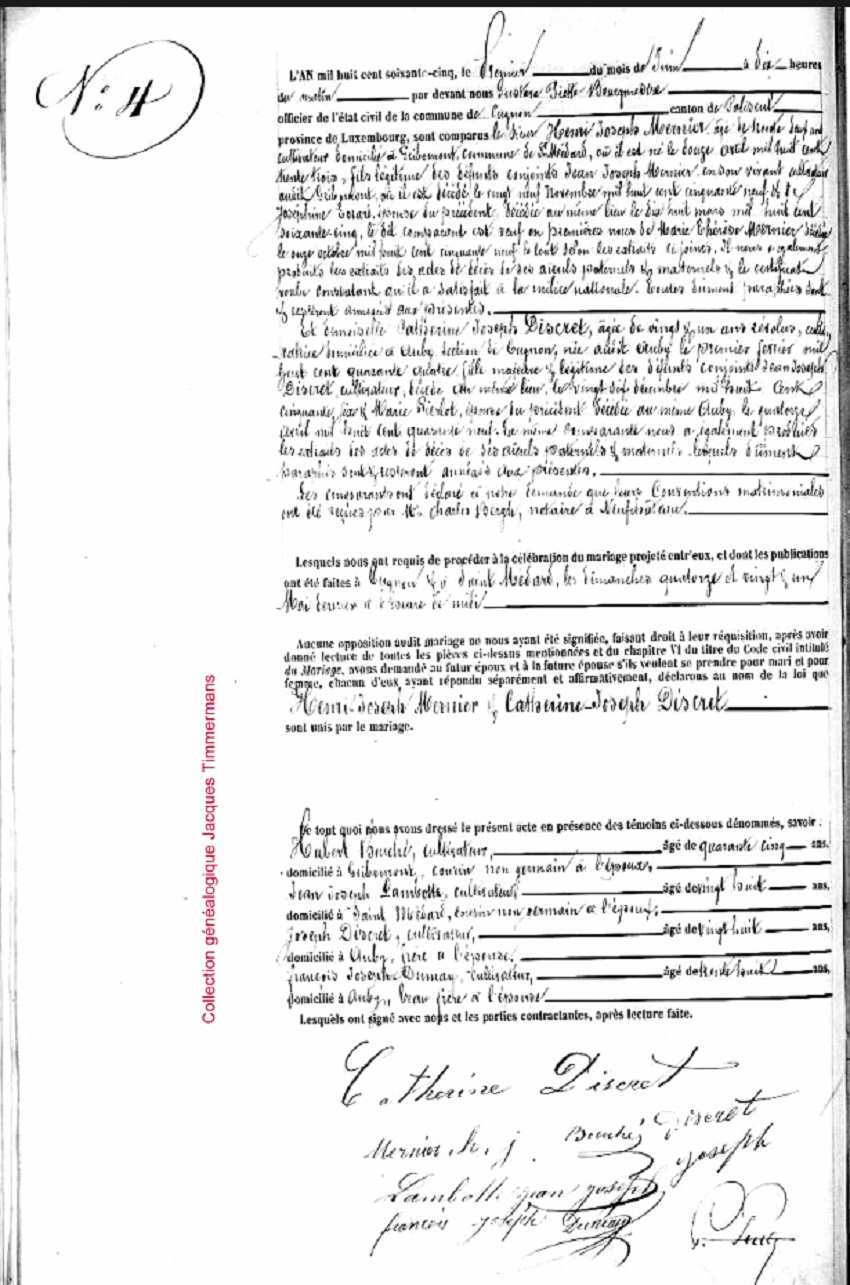 N.° 4
L'AN mil huit cent soixante-cinq, le Premier du mois de Juin à dix heures
du matin par devant nous Gustave Piette Bourgmestre
officier de l'état civil de la commune de Cugnon canton de Paliseul
province de Luxembourg, sont comparus le Sieur Henri Joseph Mernier, âgé de trente deux ans
cultivateur domicilié à Gribomont, commune de St Médard, où il est né le douze avril mil huit cent
trente trois, fils légitime des défunts conjoints Jean Joseph Mernier en son vivant cultivateur
audit Gribomont, où il est décédé le vingt neuf novembre mil huit cent cinquante neuf & de
Joséphine épouse du précédent, décédée au même lieu le dix huit mars mil huit cent
soixante cinq, le dit comparant est veuf en premières noces de Marie Thérèse Mernier décédée
le onze octobre mil huit cent cinquante neuf le tout selon les extraits ci joints. Il nous a également
produit les extraits des actes de décès de ses aieuls paternels & maternels & le certificat
voulu constatant qu'il a satisfait à la milice nationale. Toutes dûment paraphées sont
& resteront annexées aux présentes.
Et Demoiselle Catherine Joseph Discret, âgée de vingt & un ans révolus, culti-
vatrice domiciliée à Auby section de Cugnon, née audit Auby le premier février mil
huit cent quarante quatre, fille majeure & légitime des défunts conjoints Jean Joseph
Discret, cultivateur, décédé au même lieu, le vingt décembre mil huit cent
cinquante, & Marie Pierlot, épouse du précédent décédée au même Auby, le quatorze
avril mil huit cent quarante neuf. La même comparante nous a également produit
les extraits des actes de décès de ses aieuls paternels & maternels lesquels dûment
paraphés sont & resteront annexés aux présentes.
Les comparants ont déclaré à notre demande que leurs Conventions matrimoniales
ont été reçues par Mr. Charles Bergh, notaire à Neufchâteau.
Lesquels nous ont requis de procéder à la célébration du mariage projeté entr'eux, et dont les publications
ont été faites à Cugnon & à Saint Médard, les dimanches quatorze et vingt & un
Mai dernier à l'heure de midi
Aucune opposition audit mariage ne nous ayant été signifiée, faisant droit à leur réquisition, après avoir
donné lecture de toutes les pièces ci-dessus mentionnées et du chapitre VI du titre du Code civil intitulé
du Mariage, avons demandé au futur époux et à la future épouse s'ils veulent se prendre pour mari et pour
femme, chacun d'eux ayant répondu séparément et affirmativement, déclarons au nom de la loi que
Henri Joseph Mernier & Catherine-Joseph Discret
sont unis par le mariage.
De tout quoi nous avons dressé le présent acte en présence des témoins ci-dessous dénommés, savoir :
Hubert Bouché, cultivateur, âgé de quarante cinq ans,
domicilié à Gribomont, cousin non germain à l'époux,
Jean Joseph Lambotte, cultivateur, âgé de vingt huit ans,
domicilié à Saint Médard, cousin non germain à l'époux;
Joseph Discret, cultivateur, âgé de vingt huit ans,
domicilié à Auby, frère à l'épouse.
françois Joseph Dumay, cultivateur, âgé de trente huit ans,
domicilié à Auby, beau frère à l'épouse
Lesquels ont signé avec nous et les parties contractantes, après lecture faite.
Catherine Discret
Mernier h. j. Bouché Discret
joseph
Lambott jean joseph
françois joseph Dumay
Collection généalogique Jacques Timmermans